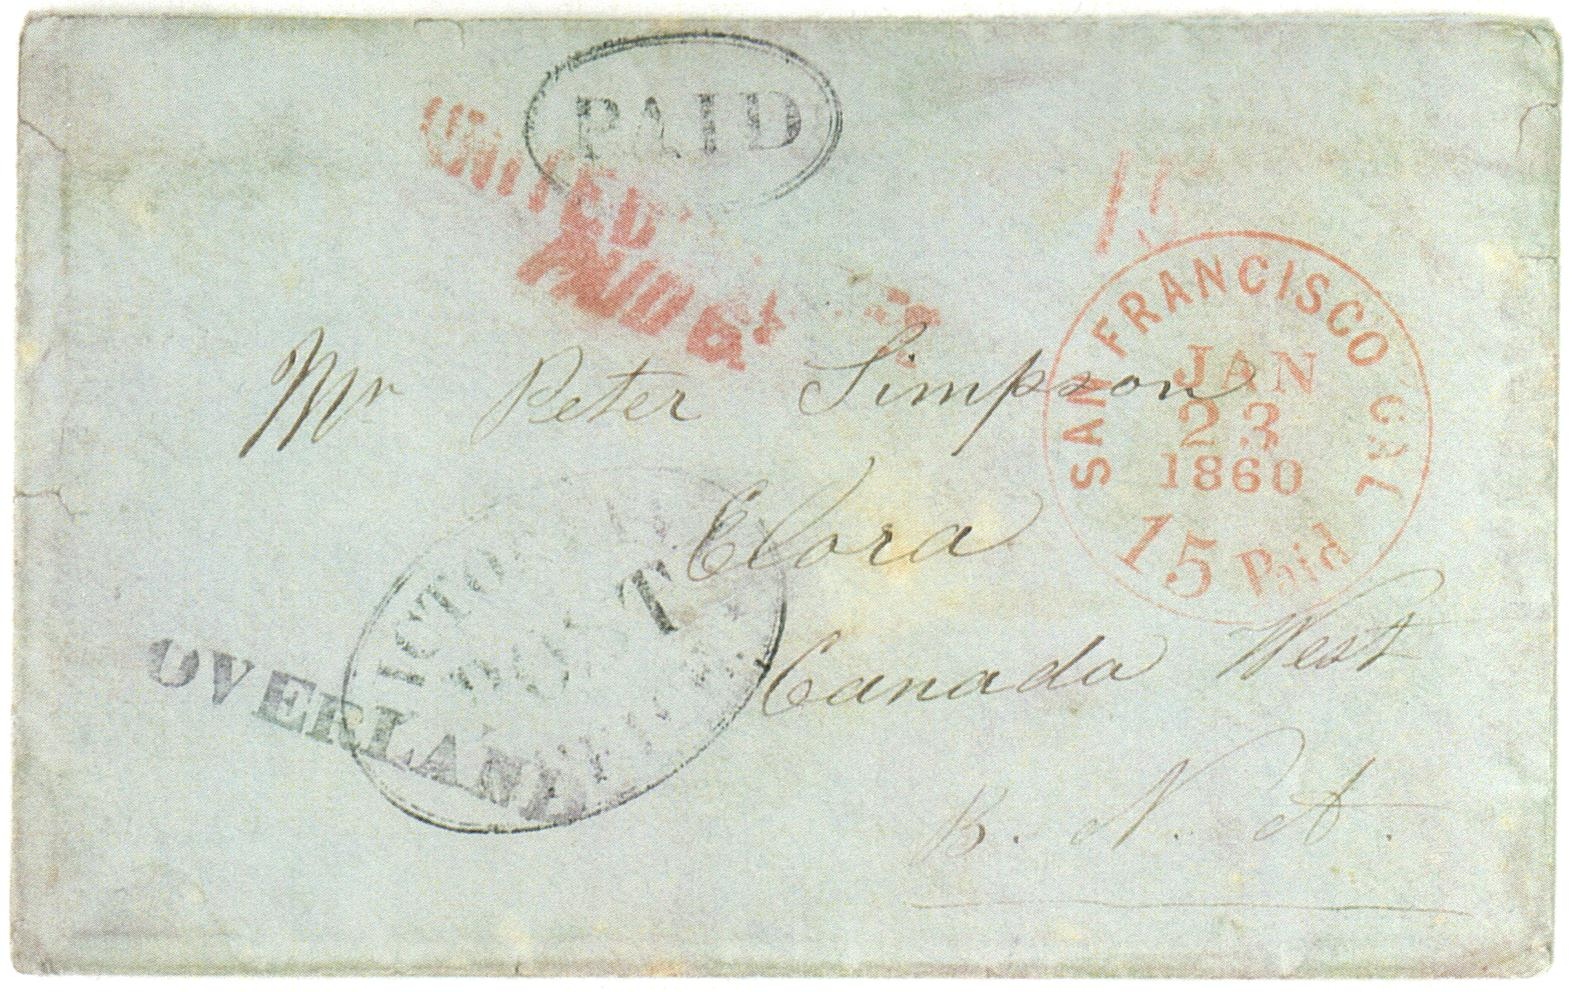 PAID
UNITED
PAID 6
15
SAN FRANCISCO CAL
JAN
23
1860
15 Paid
Mr Peter Simpson
Elora
Canada West
B. N. A.
POST
OVERLAND